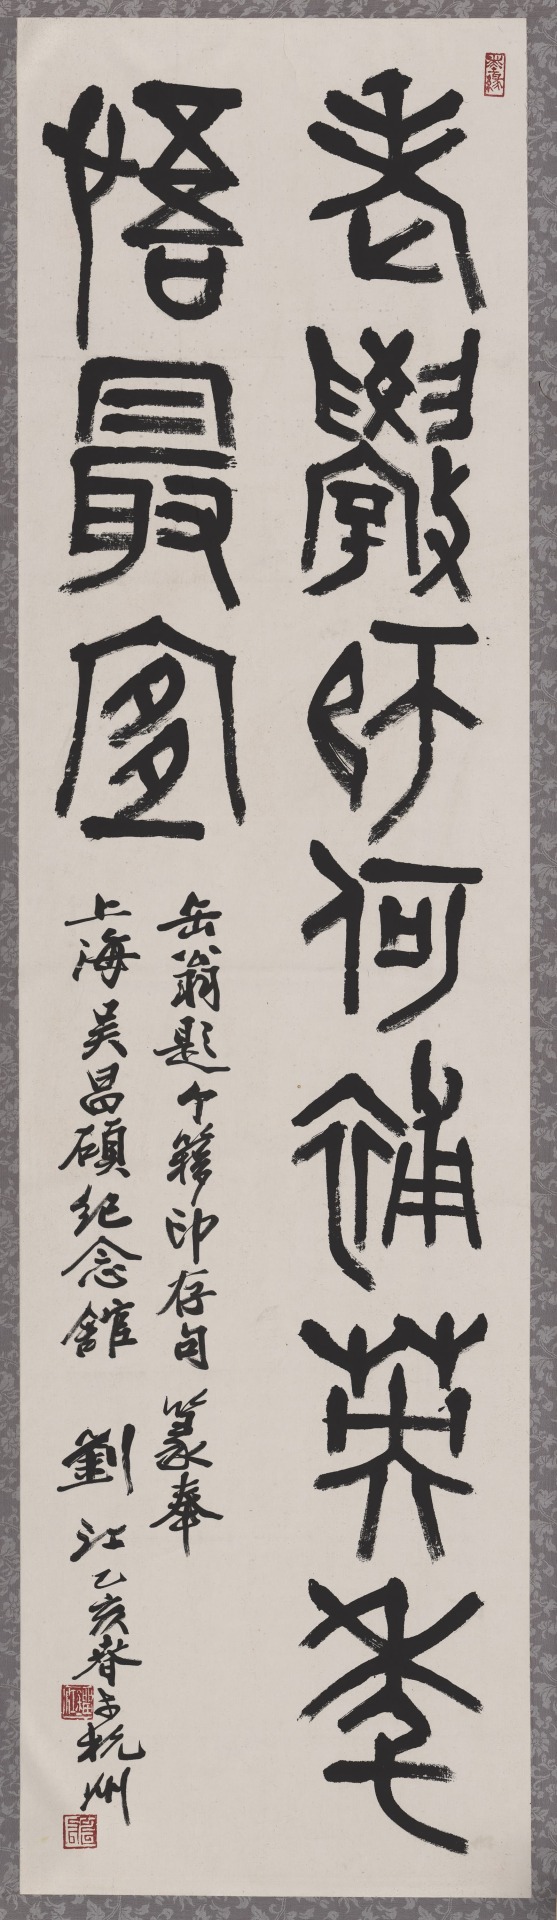 老斅師何補英年
悟最宜
缶翁題个簃印存句 篆奉
上海吳昌碩紀念館 劉江乙亥春於杭州